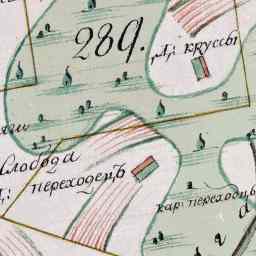 289.
Д: круссы
Слобода
Д: переходецъ
кар: переходцъ